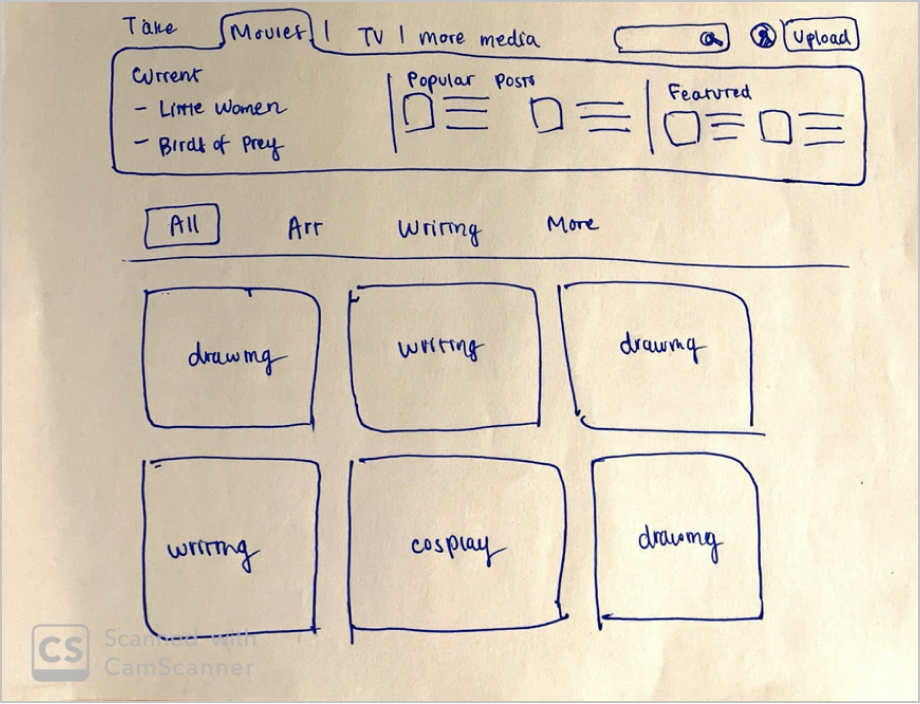 Take Movies | TV | more media Upload
Current
- Little Women
- Birds of Prey
Popular Posts
Featured
All Art Writing More
drawing writing drawing
writing cosplay drawing
CS Scanned with
CamScanner